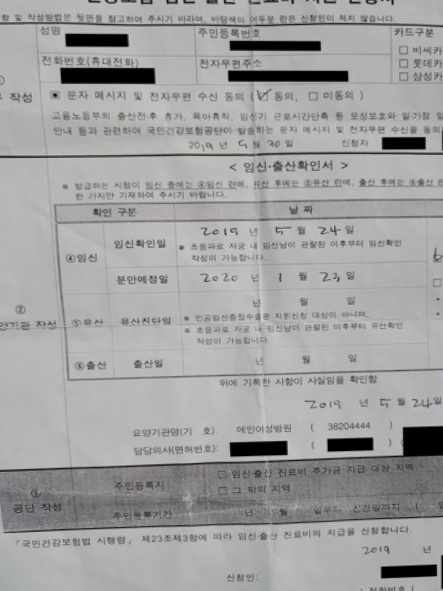 항 및 작성방법은 뒷면을 참고하여 주시기 바라며, 바탕색이 어두운 란은 신청인이 적지 않습니다.
성명
주민등록번호
카드구분
전화번호(휴대전화)
전자우편주소
□ 비씨카
□ 롯데카
□ 삼성카
①
작성
▣ 문자 메시지 및 전자우편 수신 동의 (☑ 동의, □ 미동의)
고용노동부의 출산전후 휴가, 육아휴직, 임신기 근로시간단축 등 모성보호와 일가정
안내 등과 관련하여 국민건강보험공단이 발송하는 문자 메시지 및 전자우편 수신을 동의
2019 년 5 월 30 일 신청자
< 임신·출산확인서 >
※ 발급하는 시점이 임신 중에는 ④임신 란에, 유산 후에는 ⑤유산 란에, 출산 후에는 ⑥출산 란
한 가지만 기재하여 주시기 바랍니다.
확인 구분 날 짜
④임신
임신확인일
2019 년 5 월 24 일
※ 초음파로 자궁 내 임신낭이 관찰된 이후부터 임신확인
작성이 가능합니다.
분만예정일
2020 년 1 월 23 일
②
양기관 작성
⑤유산 유산진단일
년 월 일
※ 인공임신중절수술은 지원신청 대상이 아니며,
※ 초음파로 자궁 내 임신낭이 관찰된 이후부터 유산확인
작성이 가능합니다.
⑥출산 출산일 년 월 일
위에 기록한 사항이 사실임을 확인함
2019 년 5 월 24 일
요양기관명(기 호): 예인여성병원 ( 38204444 )
담당의사(면허번호): ( )
③
공단 작성
주민등록지
□ 임신·출산 진료비 추가금 지급 대상 지역
□ 그 밖의 지역
주민등록기간 년 월 일부터 신청일까지 (
「국민건강보험법 시행령」 제23조제3항에 따라 임신·출산 진료비의 지급을 신청합니다.
2019 년
신청인: